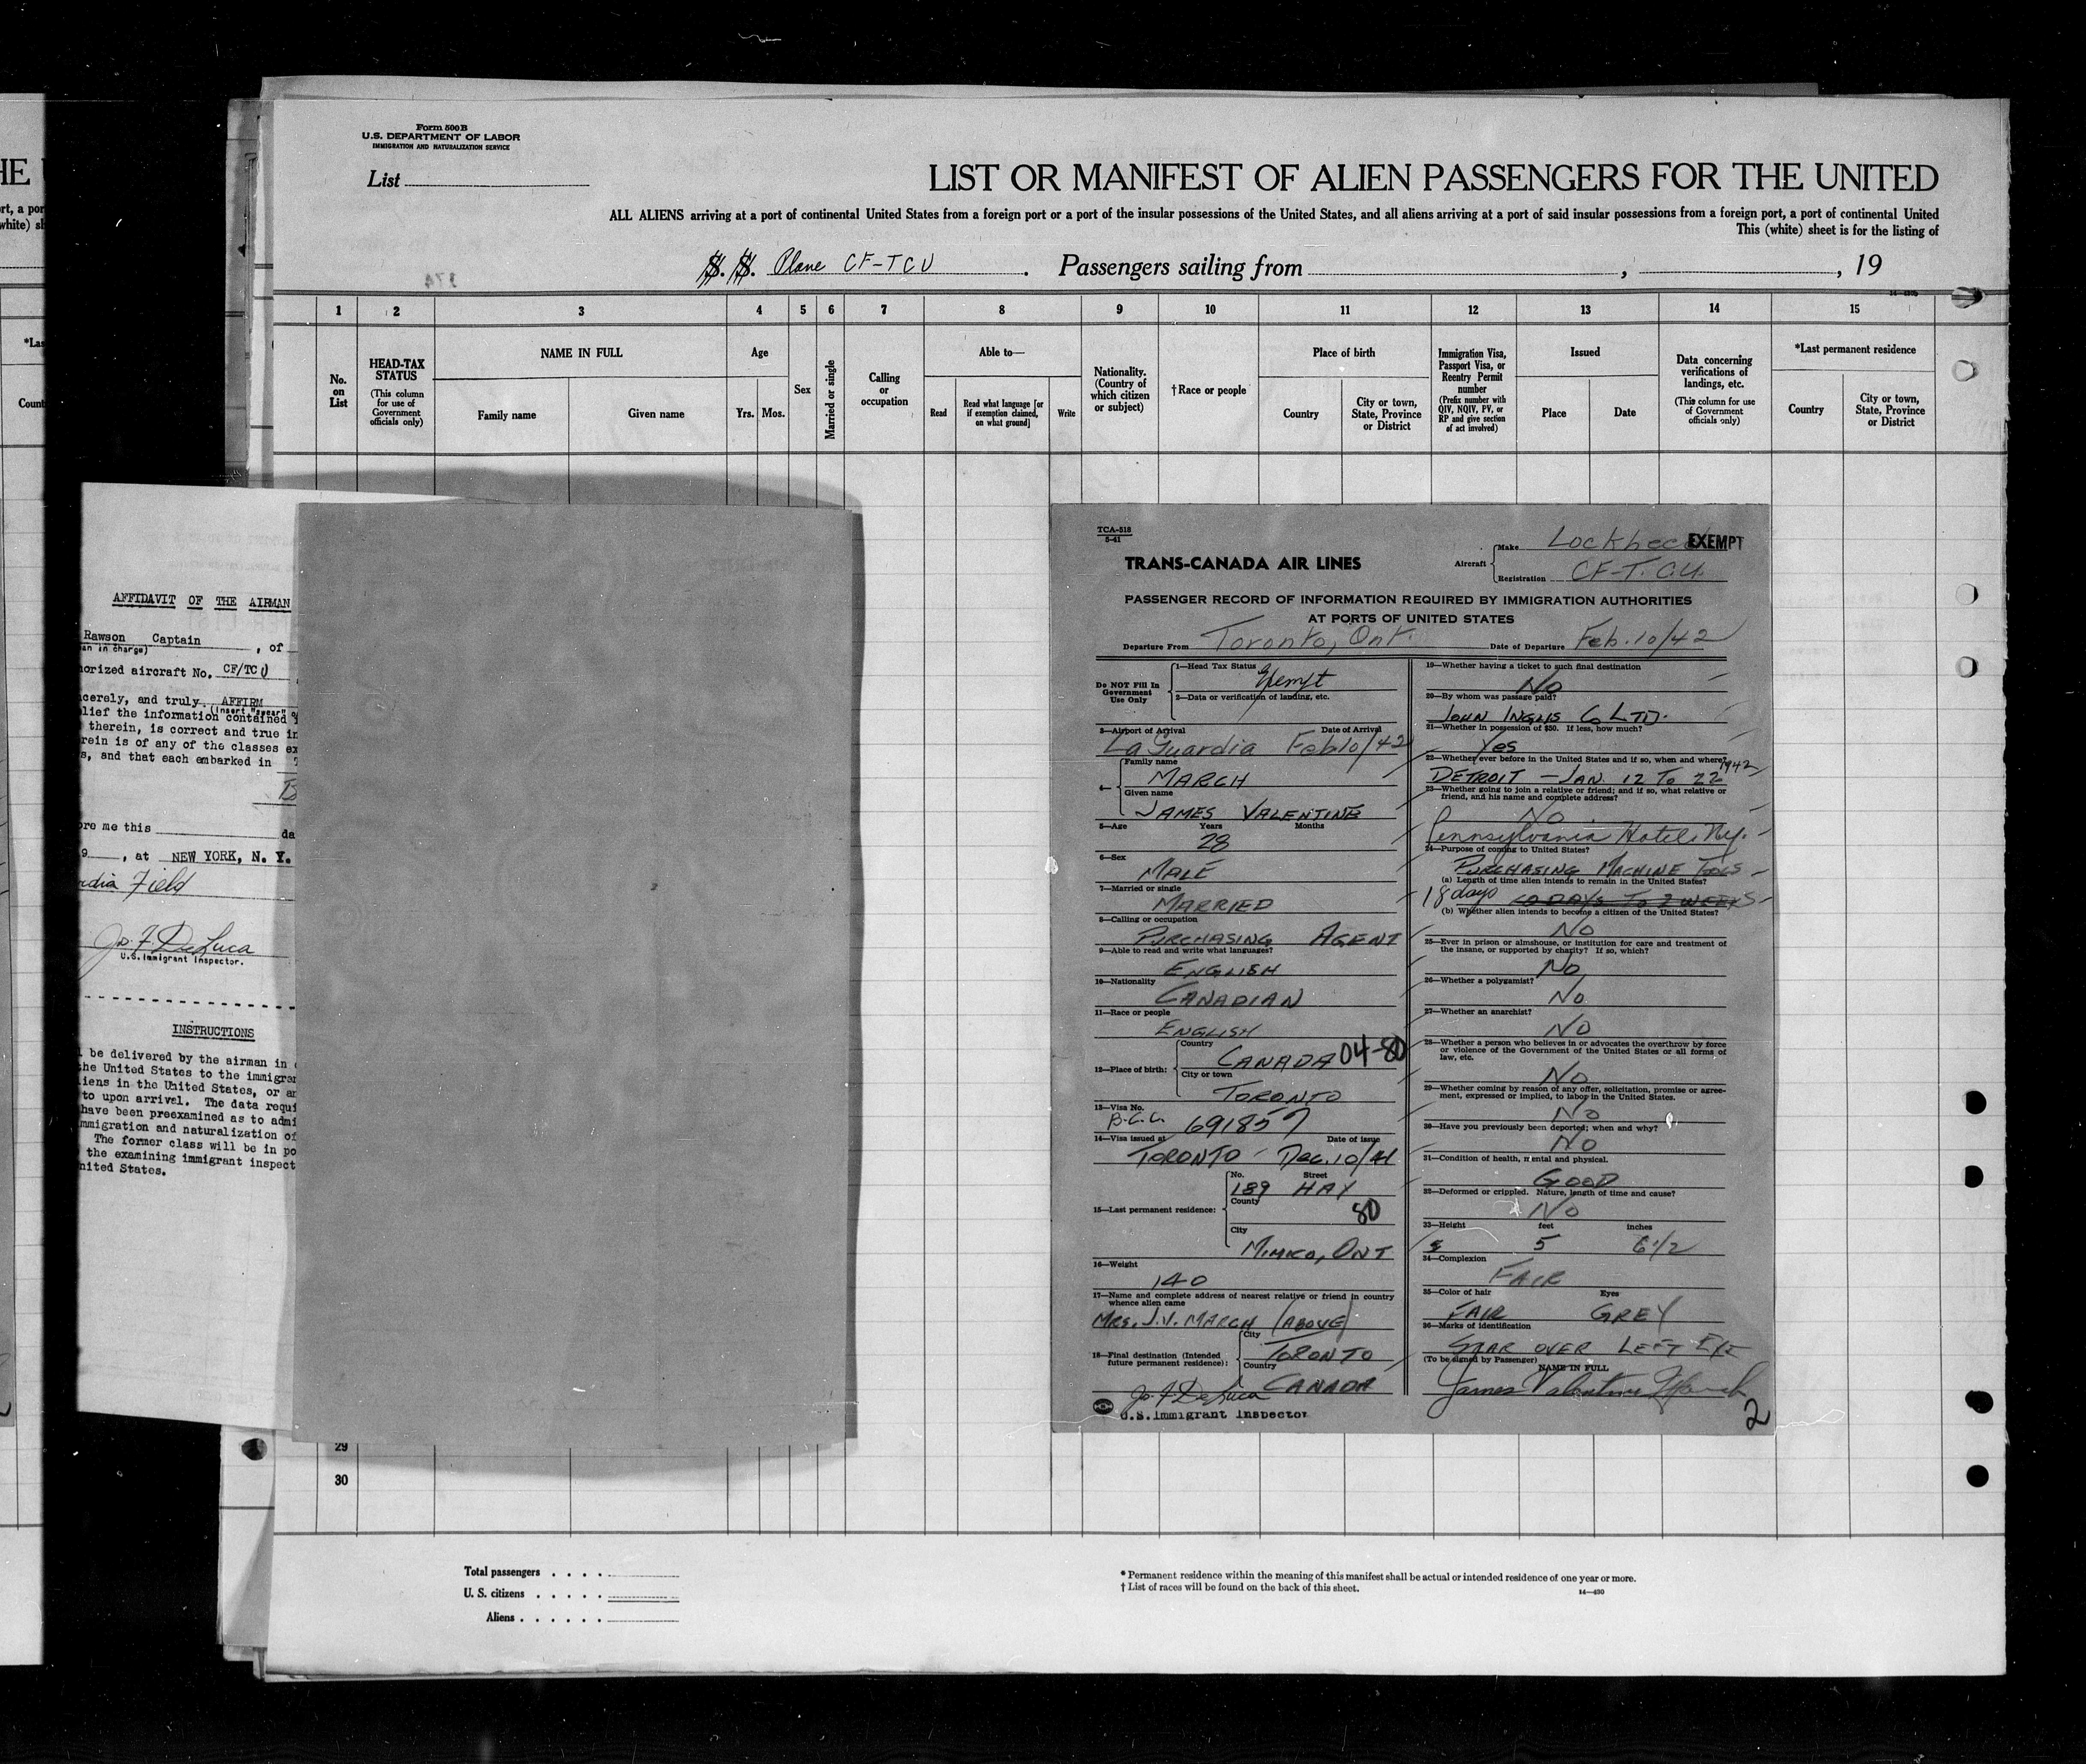 HE U
rt, a por
white) sh
*Las
Count
Form 500B
U.S. DEPARTMENT OF LABOR
IMMIGRATION AND NATURALIZATION SERVICE
List
LIST OR MANIFEST OF ALIEN PASSENGERS FOR THE UNITED
ALL ALIENS arriving at a port of continental United States from a foreign port or a port of the insular possessions of the United States, and all aliens arriving at a port of said insular possessions from a foreign port, a port of continental United
This (white) sheet is for the listing of
S. S. Plane CF-TCU . Passengers sailing from , , 19
1 2 3 4 5 6 7 8 9 10 11 12 13 14 15
No. on List
HEAD-TAX STATUS
(This column for use of Government officials only)
NAME IN FULL
Family name Given name
Age
Yrs. Mos.
Sex
Married or single
Calling or occupation
Able to—
Read
Read what language [or if exemption claimed, on what ground]
Write
Nationality. (Country of which citizen or subject)
†Race or people
Place of birth
Country
City or town, State, Province or District
Immigration Visa, Passport Visa, or Reentry Permit number
(Prefix number with QIV, NQIV, PV, or RP and give section of act involved)
Issued
Place Date
Data concerning verifications of landings, etc.
(This column for use of Government officials only)
*Last permanent residence
Country
City or town, State, Province or District
AFFIDAVIT OF THE AIRMAN
Rawson Captain , of
an in charge)
horized aircraft No. CF/TCU
cerely, and truly AFFIRM
(Insert "swear" o
lief the information contained
therein, is correct and true in
rein is of any of the classes ex
s, and that each embarked in
ore me this da
9 , at NEW YORK, N. Y.
rdia Field
Jo. F. DeLuca
U.S. Immigrant Inspector.
INSTRUCTIONS
l be delivered by the airman in
the United States to the immigra
liens in the United States, or ar
to upon arrival. The data requi
have been preexamined as to admi
mmigration and naturalization of
The former class will be in po
the examining immigrant inspect
nited States.
TCA-518
5-41
TRANS-CANADA AIR LINES
Aircraft
Make Lockheed EXEMPT
Registration CF-T.C.U.
PASSENGER RECORD OF INFORMATION REQUIRED BY IMMIGRATION AUTHORITIES
AT PORTS OF UNITED STATES
Departure From Toronto, Ont. Date of Departure Feb. 10/42
Do NOT Fill In Government Use Only
1—Head Tax Status
Exempt
2—Data or verification of landing, etc.
3—Airport of Arrival Date of Arrival
La Guardia Feb 10/42
4—
Family name
MARCH
Given name
JAMES VALENTINE
5—Age Years Months
28
6—Sex
MALE
7—Married or single
MARRIED
8—Calling or occupation
PURCHASING AGENT
9—Able to read and write what languages?
ENGLISH
10—Nationality
CANADIAN
11—Race or people
ENGLISH
12—Place of birth:
Country
CANADA 04-80
City or town
TORONTO
13—Visa No.
B.C.C. 691857
14—Visa issued at Date of issue
TORONTO - Dec. 10/41
15—Last permanent residence:
No. Street
189 HAY
County
80
City
MIMICO, ONT
16—Weight
140
17—Name and complete address of nearest relative or friend in country
whence alien came
MRS. J.V. MARCH (ABOVE)
18—Final destination (Intended future permanent residence):
City
TORONTO
Country
CANADA
Jo. F. DeLuca
U.S. Immigrant Inspector
19—Whether having a ticket to such final destination
No
20—By whom was passage paid?
JOHN INGLIS CO LTD.
21—Whether in possession of $50. If less, how much?
Yes
22—Whether ever before in the United States and if so, when and where?
DETROIT - JAN. 12 TO 22 1942
23—Whether going to join a relative or friend; and if so, what relative or
friend, and his name and complete address?
No
Pennsylvania Hotel, N.Y.
24—Purpose of coming to United States?
PURCHASING MACHINE TOOLS
(a) Length of time alien intends to remain in the United States?
18 days 10 DAYS TO 2 WEEKS
(b) Whether alien intends to become a citizen of the United States?
No
25—Ever in prison or almshouse, or institution for care and treatment of
the insane, or supported by charity? If so, which?
No
26—Whether a polygamist?
No
27—Whether an anarchist?
No
28—Whether a person who believes in or advocates the overthrow by force
or violence of the Government of the United States or all forms of
law, etc.
No
29—Whether coming by reason of any offer, solicitation, promise or agree-
ment, expressed or implied, to labor in the United States.
No
30—Have you previously been deported; when and why?
No
31—Condition of health, mental and physical.
GOOD
32—Deformed or crippled. Nature, length of time and cause?
No
33—Height feet inches
5 6 1/2
34—Complexion
FAIR
35—Color of hair Eyes
FAIR GREY
36—Marks of identification
SCAR OVER LEFT EYE
(To be signed by Passenger)
NAME IN FULL
James Valentine March
2
29
30
Total passengers
U. S. citizens
Aliens
* Permanent residence within the meaning of this manifest shall be actual or intended residence of one year or more.
† List of races will be found on the back of this sheet.
14—430